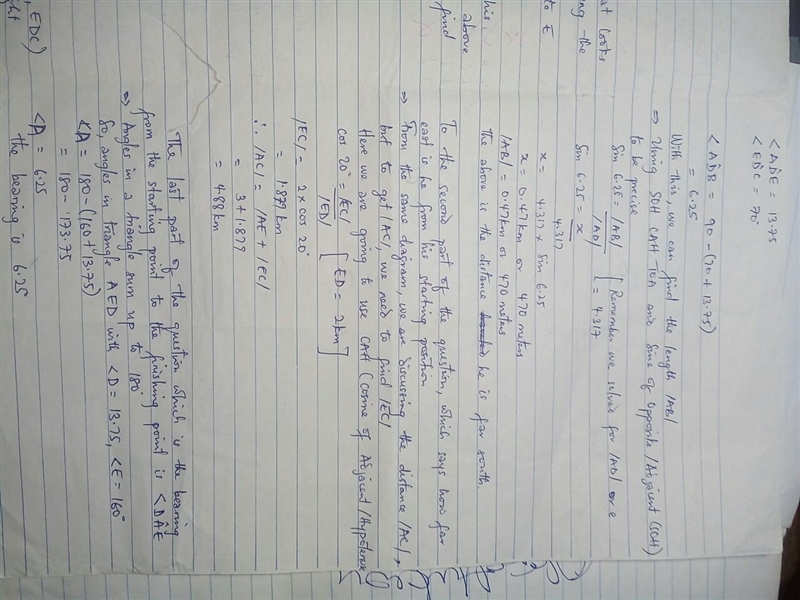 <ADE = 13.75
<EDC = 70°
<ADB = 90 - (70 + 13.75)
= 6.25
With this, we can find the length /AB/
⇒ Using SOH CAH TOA and Sine of Opposite/Adjacent (SOH)
to be precise
Sin 6.25 = /AB/
/AD/
[Remember we solved for /AD/
= 4.317
Sin 6.25 = x
4.317
x = 4.317 x Sin 6.25
x = 0.47km or 470 meters
/AB/ = 0.47km or 470 meters
The above is the distance he is far south.
To the second part of the question, which says how far
east is he from his starting position
⇒ From the same diagram, we are discussing the distance /AC/,
but to get /AC/, we need to find /EC/
Here we are going to use CAH (Cosine of Adjacent/Hypotenuse
cos 20° = /EC/
/ED/
[ED = 2km]
/EC/ = 2 x cos 20°
= 1.879 km
∴ /AC/ = /AE + /EC/
= 3 + 1.879
= 4.88km
The last part of the question which is the bearing
from the starting point to the finishing point is <DÂE
⇒ Angles in a triangle sum up to 180°
So, angles in triangle AED with <D = 13.75, <E = 160°
<A = 180 - (160 + 13.75)
= 180 - 173.75
<A = 6.25
the bearing is 6.25
at looks
ing the
to E
this.
above
find
, EDC)
ght